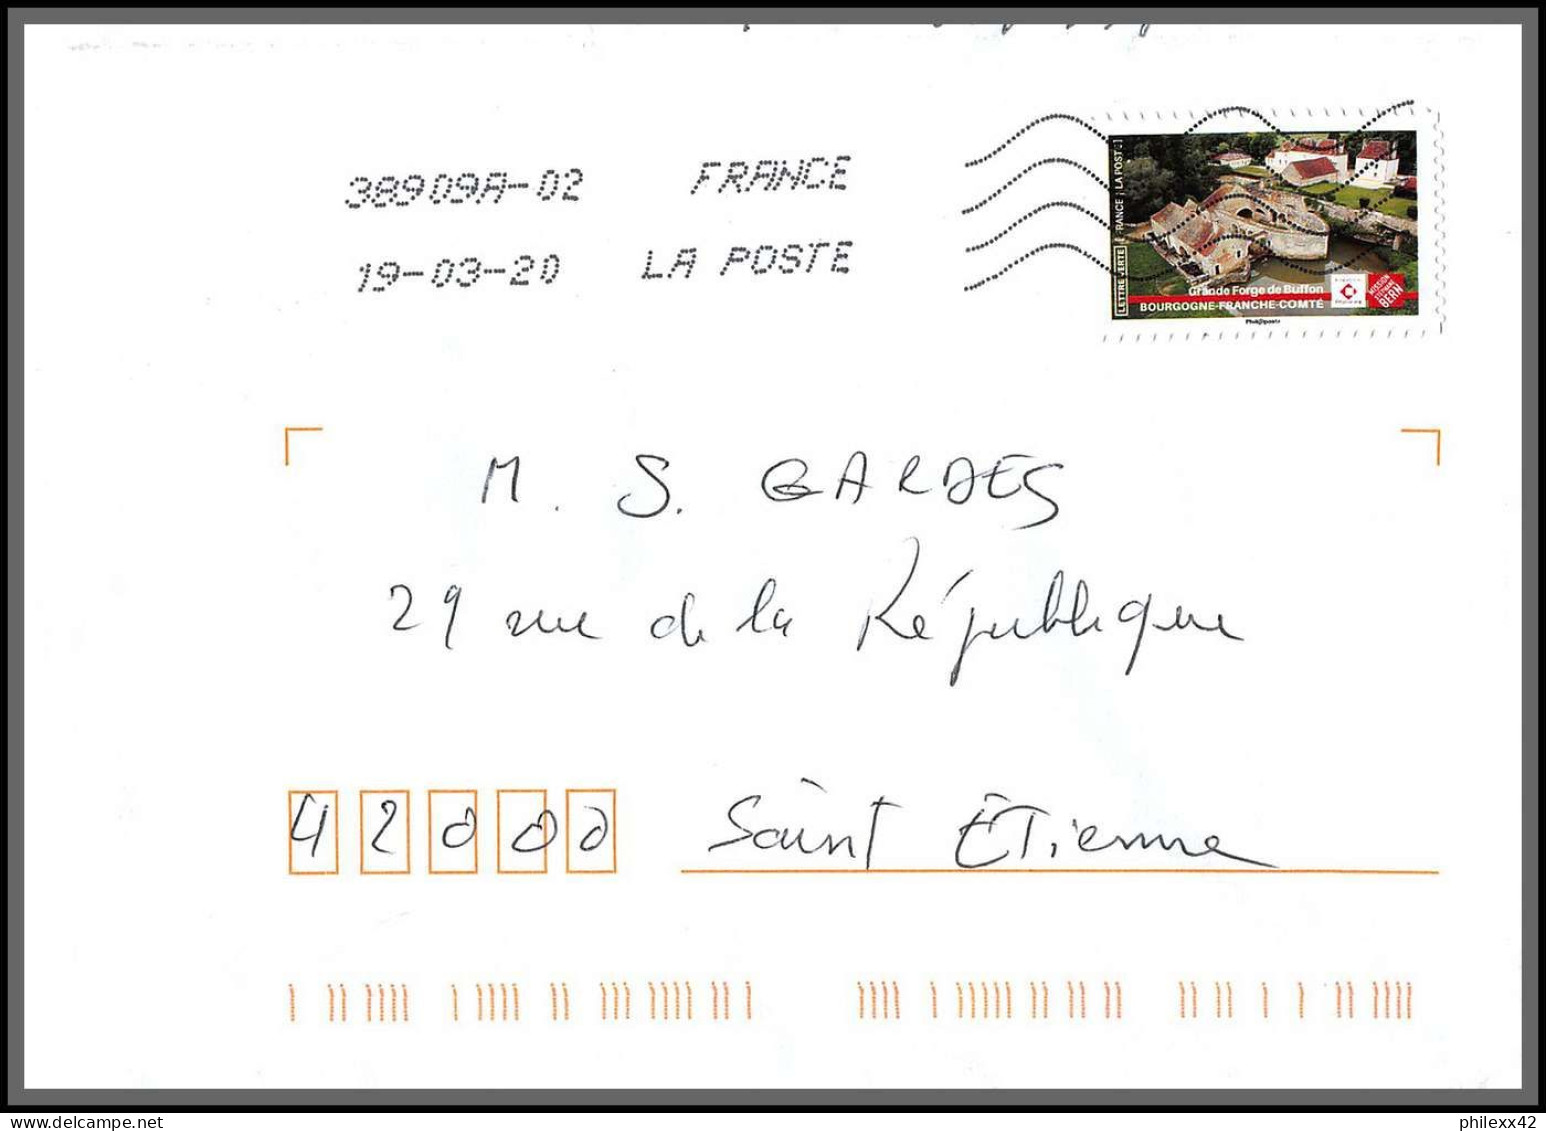 38909A-02 FRANCE
19-03-20 LA POSTE
LETTRE VERTE FRANCE LA POSTE
Grande Forge de Buffon
BOURGOGNE-FRANCHE-COMTÉ
MISSION
STÉPHANE
BERN
Phil@poste
M. S. GARDES
29 rue de la République
42000 Saint ÉTienne
philexx42